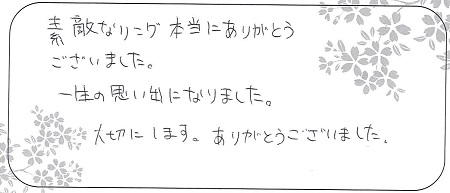 素敵なリング本当にありがとう
ございました。
一生の思い出になりました。
大切にします。ありがとうございました。